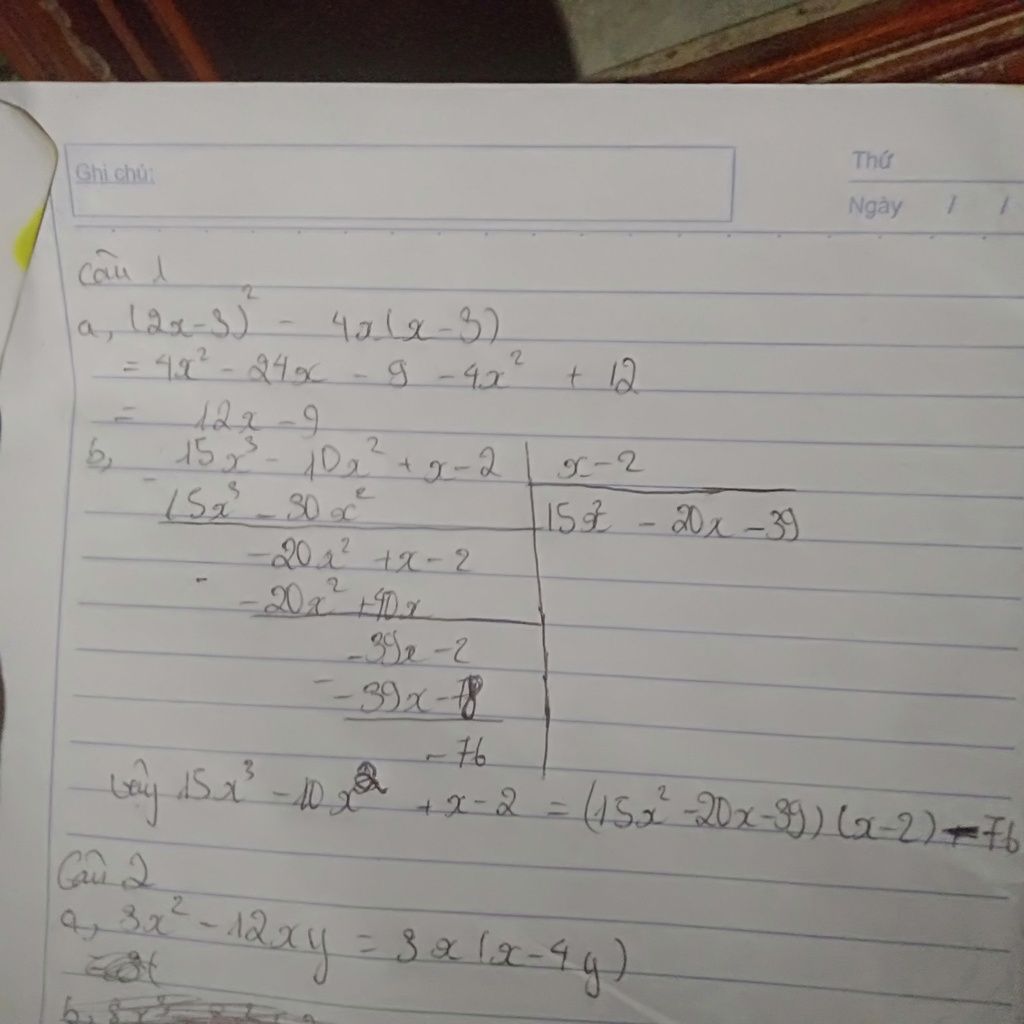 Ghi chú:
Thứ
Ngày / /
Câu 1
a, (2x-3)² - 4x(x-3)
= 4x² - 24x - 9 - 4x² + 12
= 12x - 9
b, 15x³ - 10x² + x - 2 | x - 2
- 15x³ - 30x² | 15x² - 20x - 39
-20x² + x - 2
- -20x² + 40x
-39x - 2
- -39x - 78
- 76
Vậy 15x³ - 10x² + x - 2 = (15x² - 20x - 39)(x - 2) - 76
Câu 2
a, 3x² - 12xy = 3x(x - 4y)
b,